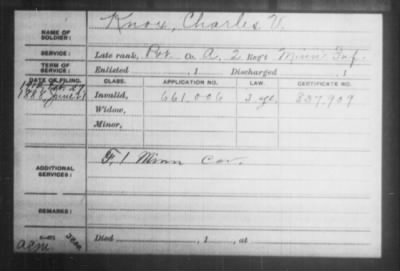 NAME OF SOLDIER: Knox, Charles V.
SERVICE: Late rank, Pvt Co. A, 2 Reg't Minn Inf.
TERM OF SERVICE: Enlisted , 1 Discharged , 1
DATE OF FILING. CLASS. APPLICATION NO. LAW. CERTIFICATE NO.
1888 June Invalid, 661,006 337,909
Widow,
Minor,
ADDITIONAL SERVICES: F, 1 Minn Cav.
REMARKS:
Died , 1 , at